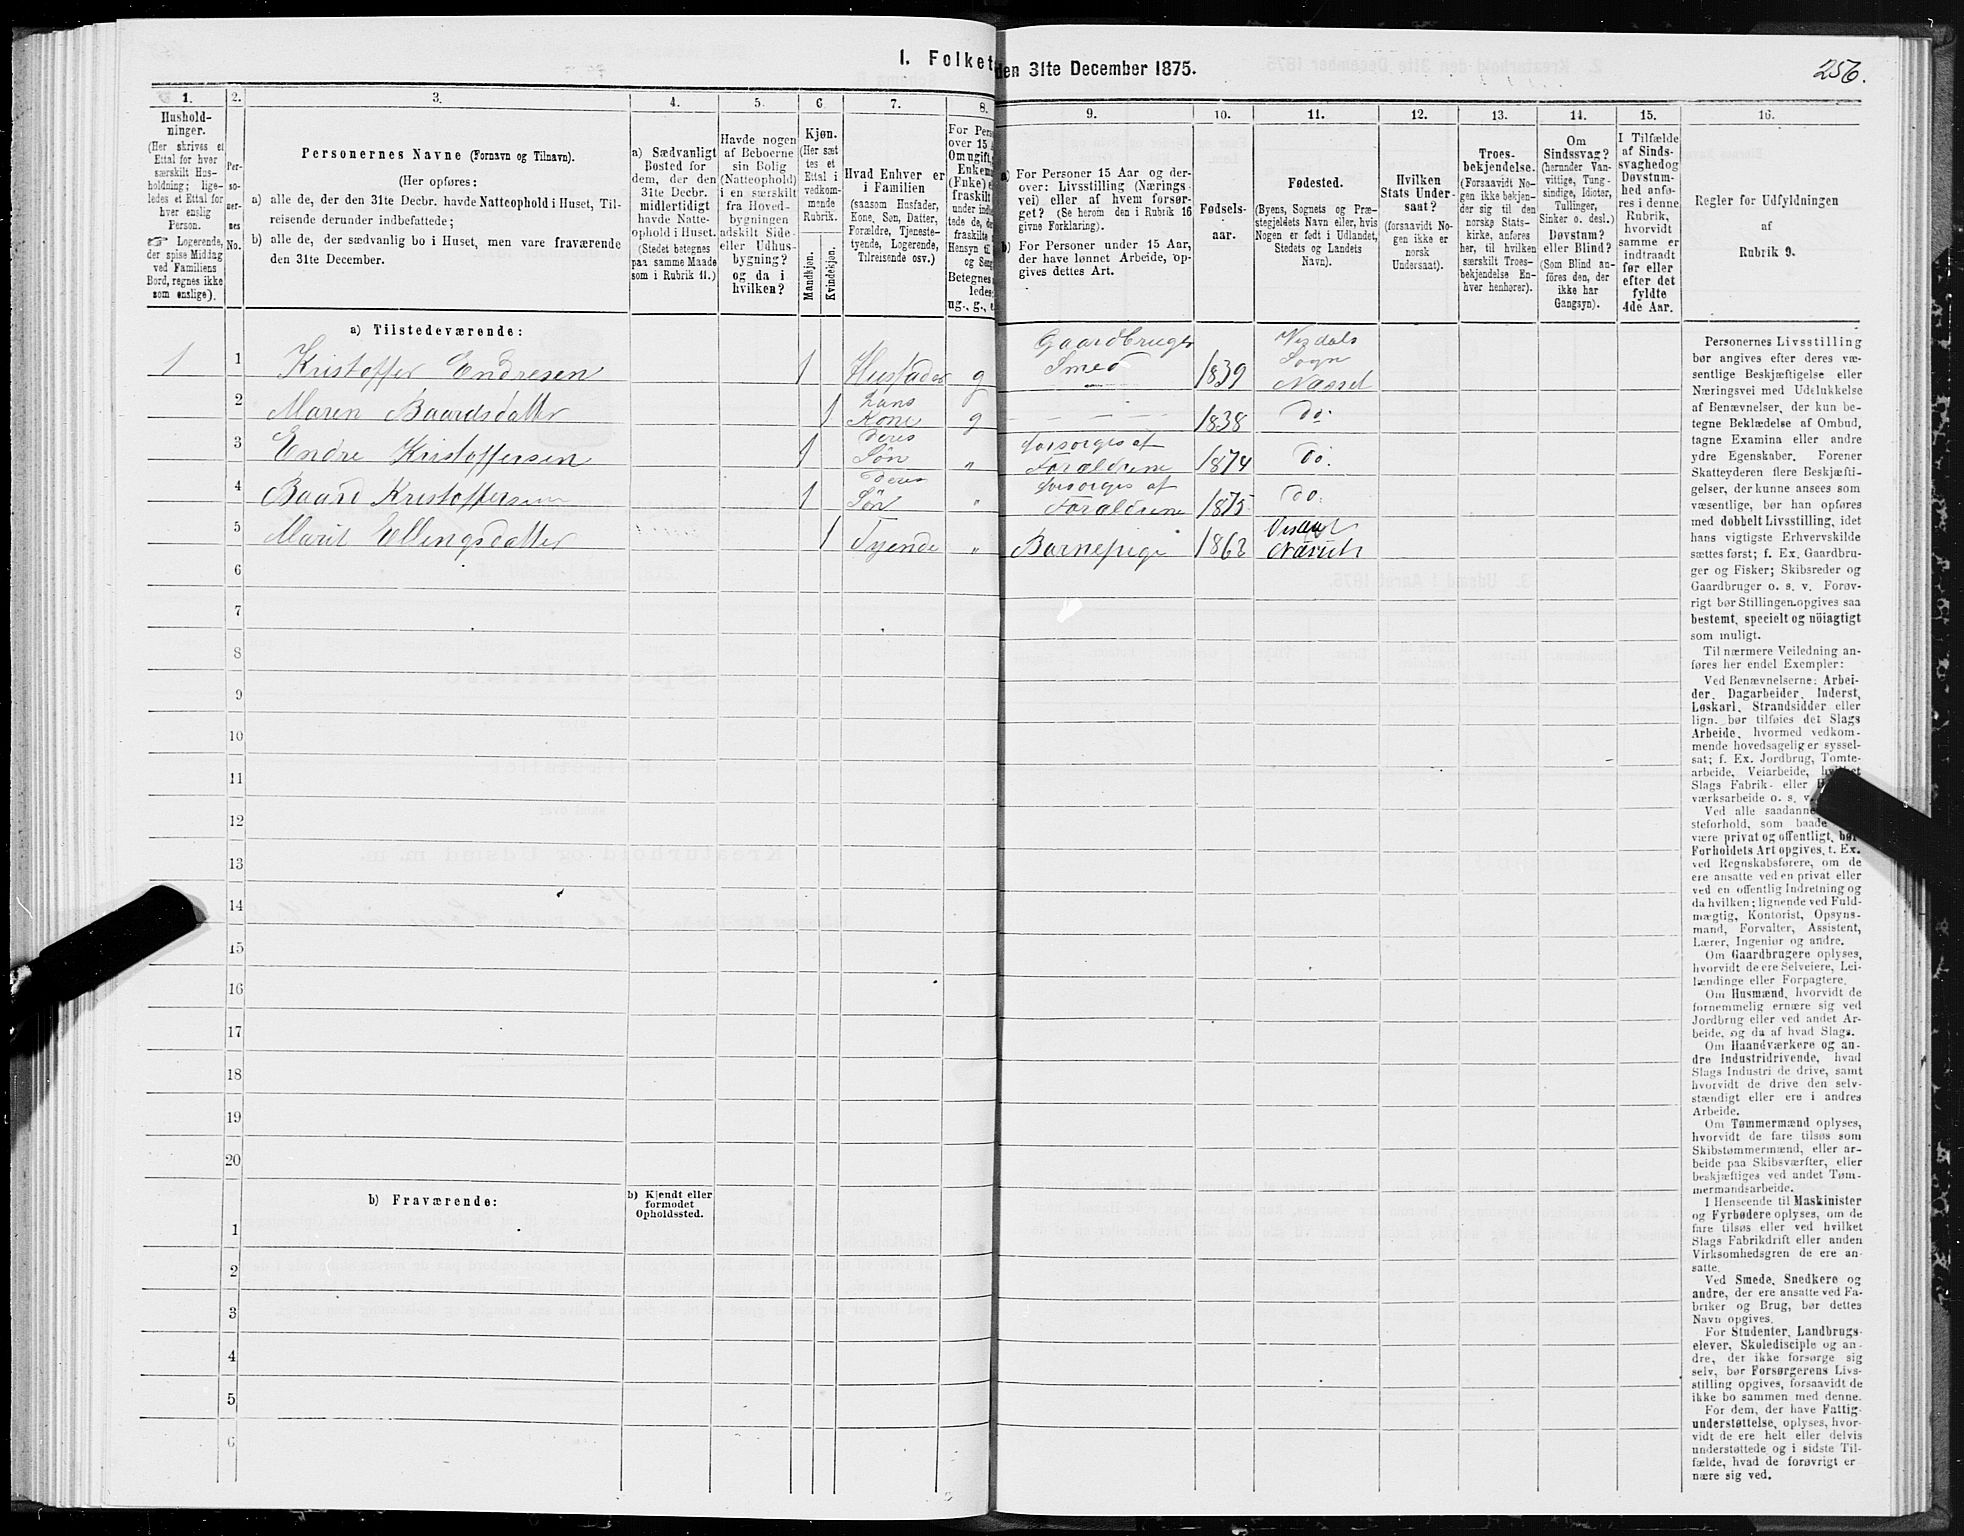 1. Folket
den 31te December 1875.
256.
1.
Hushold-
ninger.
(Her skrives et
Ettal for hver
særskilt Hus-
holdning; lige-
ledes et Ettal for
hver enslig
Person.
☞ Logerende,
der spise Middag
ved Familiens
Bord, regnes ikke
som enslige).
2.
Per-
so-
ner-
nes
No.
3.
Personernes Navne (Fornavn og Tilnavn).
(Her opføres:
a) alle de, der den 31te Decbr. havde Natteophold i Huset, Til-
reisende derunder indbefattede;
b) alle de, der sædvanlig bo i Huset, men vare fraværende
den 31te December.
4.
a) Sædvanligt
Bosted for
dem, der den
31te Decbr.
midlertidigt
havde Natte-
ophold i Huset.
(Stedet betegnes
paa samme Maade
som i Rubrik 11.)
5.
Havde nogen
af Beboerne
sin Bolig
(Natteophold)
i en særskilt
fra Hoved-
bygningen
adskilt Side-
eller Udhus-
bygning?
og da i
hvilken?
6.
Kjøn.
(Her sæt
tes et
Ettal i
vedkom-
mende
Rubrik.
Mandkjøn.
Kvindekjøn.
7.
Hvad Enhver er
i Familien
(saasom Husfader,
Kone, Søn, Datter,
Forældre, Tjeneste-
tyende, Logerende,
Tilreisende osv.)
8.
For Pers
over 15 A
Om ugift,
Enkem
(Enke) e
fraskilt
under indb
tede de, de
fraskilte
Hensyn ti
og Seng
Betegnes
ledes:
ug., g., e
9.
a) For Personer 15 Aar og der-
over: Livsstilling (Nærings-
vei) eller af hvem forsør-
get? (Se herom den i Rubrik 16
givne Forklaring).
b) For Personer under 15 Aar,
der have lønnet Arbeide, op-
gives dettes Art.
10.
Fødsels-
aar.
11.
Fødested.
(Byens, Sognets og Præ-
stegjeldets Navn eller, hvis
Nogen er født i Udlandet,
Stedets og Landets
Navn).
12.
Hvilken
Stats Under-
saat?
(forsaavidt No-
gen ikke er
norsk
Undersaat).
13.
Troes-
bekjendelse.
(Forsaavidt No-
gen ikke bekjen-
der sig til den
norske Stats-
kirke, anføres
her, til hvilken
særskilt Troes-
bekjendelse En-
hver henhører).
14.
Om
Sindssvag?
(herunder Van-
vittige, Tung-
sindige, Idioter,
Tullinger,
Sinker o. desl.)
Døvstum?
eller Blind?
(Som Blind an-
føres den, der
ikke har
Gangsyn).
15.
I Tilfælde
af Sinds-
svaghedog
Døvstum-
hed anfø-
res i denne
Rubrik,
hvorvidt
samme er
indtraadt
før eller
efter det
fyldte
4de Aar.
16.
Regler for Udfyldningen
af
Rubrik 9.
a) Tilstedeværende:
1 1 Kristoffer Endresen 1 Husfader g Gaardbruger Smed 1839 Sogn
2 Maren Baardsdatter 1 Hans Kone g 1838 do.
3 Endre Kristoffersen 1 Deres Søn „ forsørges af Forældrene 1874 do.
4 Baard Kristoffersen 1 Deres Søn „ forsørges af Forældrene 1875 do.
5 Marit Ellingsdatter 1 Tyende „ Barnepige 1862
6
7
8
9
10
11
12
13
14
15
16
17
18
19
20
b) Fraværende:
b) Kjendt eller
formodet
Opholdssted.
1
2
3
4
5
6
Personernes Livsstilling
bør angives efter deres væ-
sentlige Beskjæftigelse eller
Næringsvei med Udelukkelse
af Benævnelser, der kun be-
tegne Beklædelse af Ombud,
tagne Examina eller andre
ydre Egenskaber. Forener
Skatteyderen flere Beskjæfti-
gelser, der kunne ansees som
væsentlige, bør han opføres
med dobbelt Livsstilling, idet
hans vigtigste Erhvervskilde
sættes først; f. Ex. Gaardbru-
ger og Fisker; Skibsreder og
Gaardbruger o. s. v. Forøv-
rigt bør Stillingen opgives saa
bestemt, specielt og nöiagtigt
som muligt.
Til nærmere Veiledning an-
føres her endel Exempler:
Ved Benævnelserne: Arbei-
der, Dagarbeider, Inderst,
Løskarl, Strandsidder eller
lign. bør tilføies det Slags
Arbeide, hvormed vedkom-
mende hovedsagelig er syssel-
sat; f. Ex. Jordbrug, Tomte-
arbeide, Veiarbeide, hvilket
Slags Fabrik- eller
værksarbeide o. s. v.
Ved alle saadanne
steforhold, som baade
være privat og offentligt, bør
Forholdets Art opgives, t. Ex.
ved Regnskabsførere, om de
ere ansatte ved en privat eller
ved en offentlig Indretning og
da hvilken; lignende ved Fuld-
mægtig, Kontorist, Opsyns-
mand, Forvalter, Assistent,
Lærer, Ingeniør og andre.
Om Gaardbrugere oplyses,
hvorvidt de ere Selveiere, Lei-
lændinge eller Forpagtere.
Om Husmænd, hvorvidt de
fornemmelig ernære sig ved
Jordbrug eller ved andet Ar-
beide, og da af hvad Slags.
Om Haandværkere og an-
dre Industridrivende, hvad
Slags Industri de drive, samt
hvorvidt de drive den selv-
stændigt eller ere i andres
Arbeide.
Om Tømmermænd oplyses,
hvorvidt de fare tilsøs som
Skibstømmermænd, eller ar-
beide paa Skibsværfter, eller
beskjæftiges ved andet Tøm-
mermandsarbeide.
I Henseende til Maskinister
og Fyrbødere oplyses, om de
fare tilsøs eller ved hvilket
Slags Fabrikdrift eller anden
Virksomhedsgren de ere an-
satte.
Ved Smede, Snedkere og
andre, der ere ansatte ved Fa-
briker og Brug, bør dettes
Navn opgives.
For Studenter, Landbrugs-
elever, Skoledisciple og an-
dre, der ikke forsørge sig
selv, bør Forsørgerens Livs-
stilling opgives, forsaavidt de
ikke bo sammen med denne.
For dem, der have Fattig-
understøttelse, oplyses, hvor-
vidt de ere helt eller delvis
understøttede og i sidste Til-
fælde, hvad de forøvrigt er-
nære sig ved.